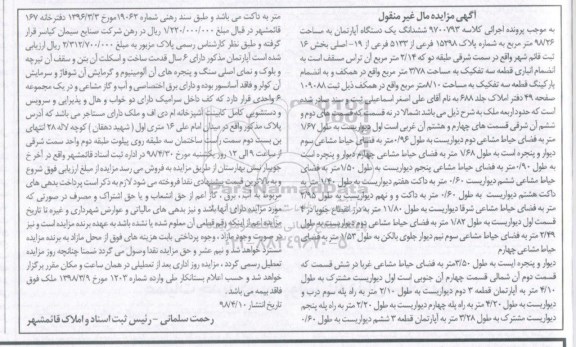 آگهی مزایده مال غیر منقول
به موجب پرونده اجرائی کلاسه ۹۷۰۰۷۹۳ ششدانگ یک دستگاه آپارتمان به مساحت
۹۸/۲۶ متر مربع به شماره پلاک ۱۵۲۹۸ فرعی از ۵۱۳۳ فرعی از ۱۹- اصلی بخش ۱۶
ثبت قائم شهر واقع در سمت شرقی طبقه دو که ۲/۱۴ متر مربع آن تراس مسقف است به
انضمام انباری قطعه سه تفکیک به مساحت ۳/۷۸ متر مربع واقع در همکف و به انضمام
پارکینگ قطعه سه تفکیک به مساحت ۱۰/۸۰ متر مربع واقع در همکف ذیل ثبت ۱۰۹۰۸۸
صفحه ۴۹ دفتر املاک جلد ۶۸۸ به نام آقای علی اصغر اسماعیلی
است که حدود اربعه ملک به شرح ذیل می باشد: شمالا در نه قسمت که قسمت های دوم و
ششم آن شرقی قسمت های چهارم و هشتم آن غربی است اول دیواریست به طول ۱/۶۷
متر به فضای حیاط مشاعی دوم دیواریست به طول ۰/۹۶ متر به فضای حیاط مشاعی سوم
دیوار و پنجره است به طول ۱/۶۸ متر به فضای حیاط مشاعی چهارم دیوار و پنجره است
به طول ۰/۹۰ متر به فضای حیاط مشاعی پنجم دیواریست به طول ۱/۵۰ متر به فضای
حیاط مشاعی ششم دیواریست ۰/۶۰ متر به داکت هفتم دیواریست به طول متر به
داکت هشتم دیواریست به طول ۰/۶۰ متر به داکت و نهم دیواریست به طول
متر به فضای حیاط مشاعی شرقا دیواریست به طول ۱۱/۸۰ متر به درز انقطاع جنوبا در ۴
قسمت اول دیواریست به طول ۱/۸۲ متر به فضای حیاط مشاعی دوم دیواریست به طول
۲/۴۹ متر به فضای حیاط مشاعی سوم نیم دیوار جلوی بالکن به طول متر به فضای
حیاط مشاعی چهارم
دیوار و پنجره ایست به طول ۳/۵۰ متر به فضای حیاط مشاعی غربا در شش قسمت که
قسمت دوم آن شمالی قسمت چهارم آن جنوبی است اول دیواریست مشترک به طول
۴/۱۰ متر به آپارتمان قطعه ۳ دوم دیواریست به طول ۲/۱۰ متر به راه پله سوم درب و
دیواریست به طول ۴/۲۰ متر به راه پله چهارم دیواریست به طول ۲/۲۰ متر به راه پله پنجم
دیواریست مشترک به طول ۳/۲۸ متر به آپارتمان قطعه ۳ ششم دیواریست به طول ۰/۶۰
متر به داکت می باشد و طبق سند رهنی شماره ۱۹۰۶۳ مورخ ۱۳۹۶/۳/۳ دفترخانه ۱۶۷
قائمشهر در قبال مبلغ ۱/۲۲۰/۰۰۰/۰۰۰ ریال در رهن شرکت صنایع سیمان کیاسر قرار
گرفته و طبق نظر کارشناس رسمی پلاک مزبور به مبلغ ۲/۳۱۲/۷۰۰/۰۰۰ ریال ارزیابی
شده است آپارتمان مذکور دارای ۶ سال قدمت ساخت و اسکلت آن بتن و سقف آن تیرچه
و بلوک و نمای اصلی سنگ و پنجره های آن آلومینیوم و گرمایش آن شوفاژ و سرمایش
آن کولر و فاقد آسانسور بوده و دارای برق اختصاصی و آب و گاز مشاعی و در یک مجموعه
۶ واحدی قرار دارد که کف داخل سرامیک دارای دو خواب و هال و پذیرایی و سرویس
و دستشویی کامل کابینت آشپزخانه ام دی اف و ملک دارای مستاجر می باشد که آدرس
پلاک مذکور واقع در میدان امام علی ۱۶ متری اول ( شهید دهقان ) کوچه لاله ۲۸ انتهای
بن بست دوم سمت راست ساختمان سه طبقه روی پیلوت طبقه دوم واحد سمت شرقی
از ساعت ۹ الی ۱۲ روز یکشنبه مورخ ۹۸/۴/۳۰ در اداره ثبت اسناد قائمشهر واقع در آخر خ
جویبار نبش بهارستان از طریق مزایده به فروش می رسد مزایده از مبلغ ارزیابی فوق شروع
و به بالاترین قیمت پیشنهادی نقدا فروخته می شود لازم به ذکر است پرداخت بدهی های
مربوط به آب ، برق ، گاز اعم از حق انشعاب و یا حق اشتراک و مصرف در صورتی که
مورد مزایده دارای آنها باشد و نیز بدهی های مالیاتی و عوارض شهرداری و غیره تا تاریخ
مزایده اعم از اینکه رقم قطعی آن معلوم شده یا نشده باشد به عهده برنده مزایده است و نیز
در صورت وجود مازاد ، وجوه پرداختی بابت هزینه های فوق از محل مازاد به برنده مزایده
مسترد خواهد شد و نیم عشر و حق مزایده نقدا وصول می گردد ضمنا چنانچه روز مزایده
تعطیل رسمی گردد ، مزایده روز اداری بعد از تعطیلی در همان ساعت و مکان مقرر برگزار
خواهد شد و حسب اعلام بستانکار طی وارده شماره ۱۲۰۳ مورخ ۱۳۹۸/۳/۹ ملک فوق
فاقد بیمه می باشد .
تاریخ انتشار ۹۸/۴/۱۰
رحمت سلمانی - رئیس ثبت اسناد و املاک قائمشهر